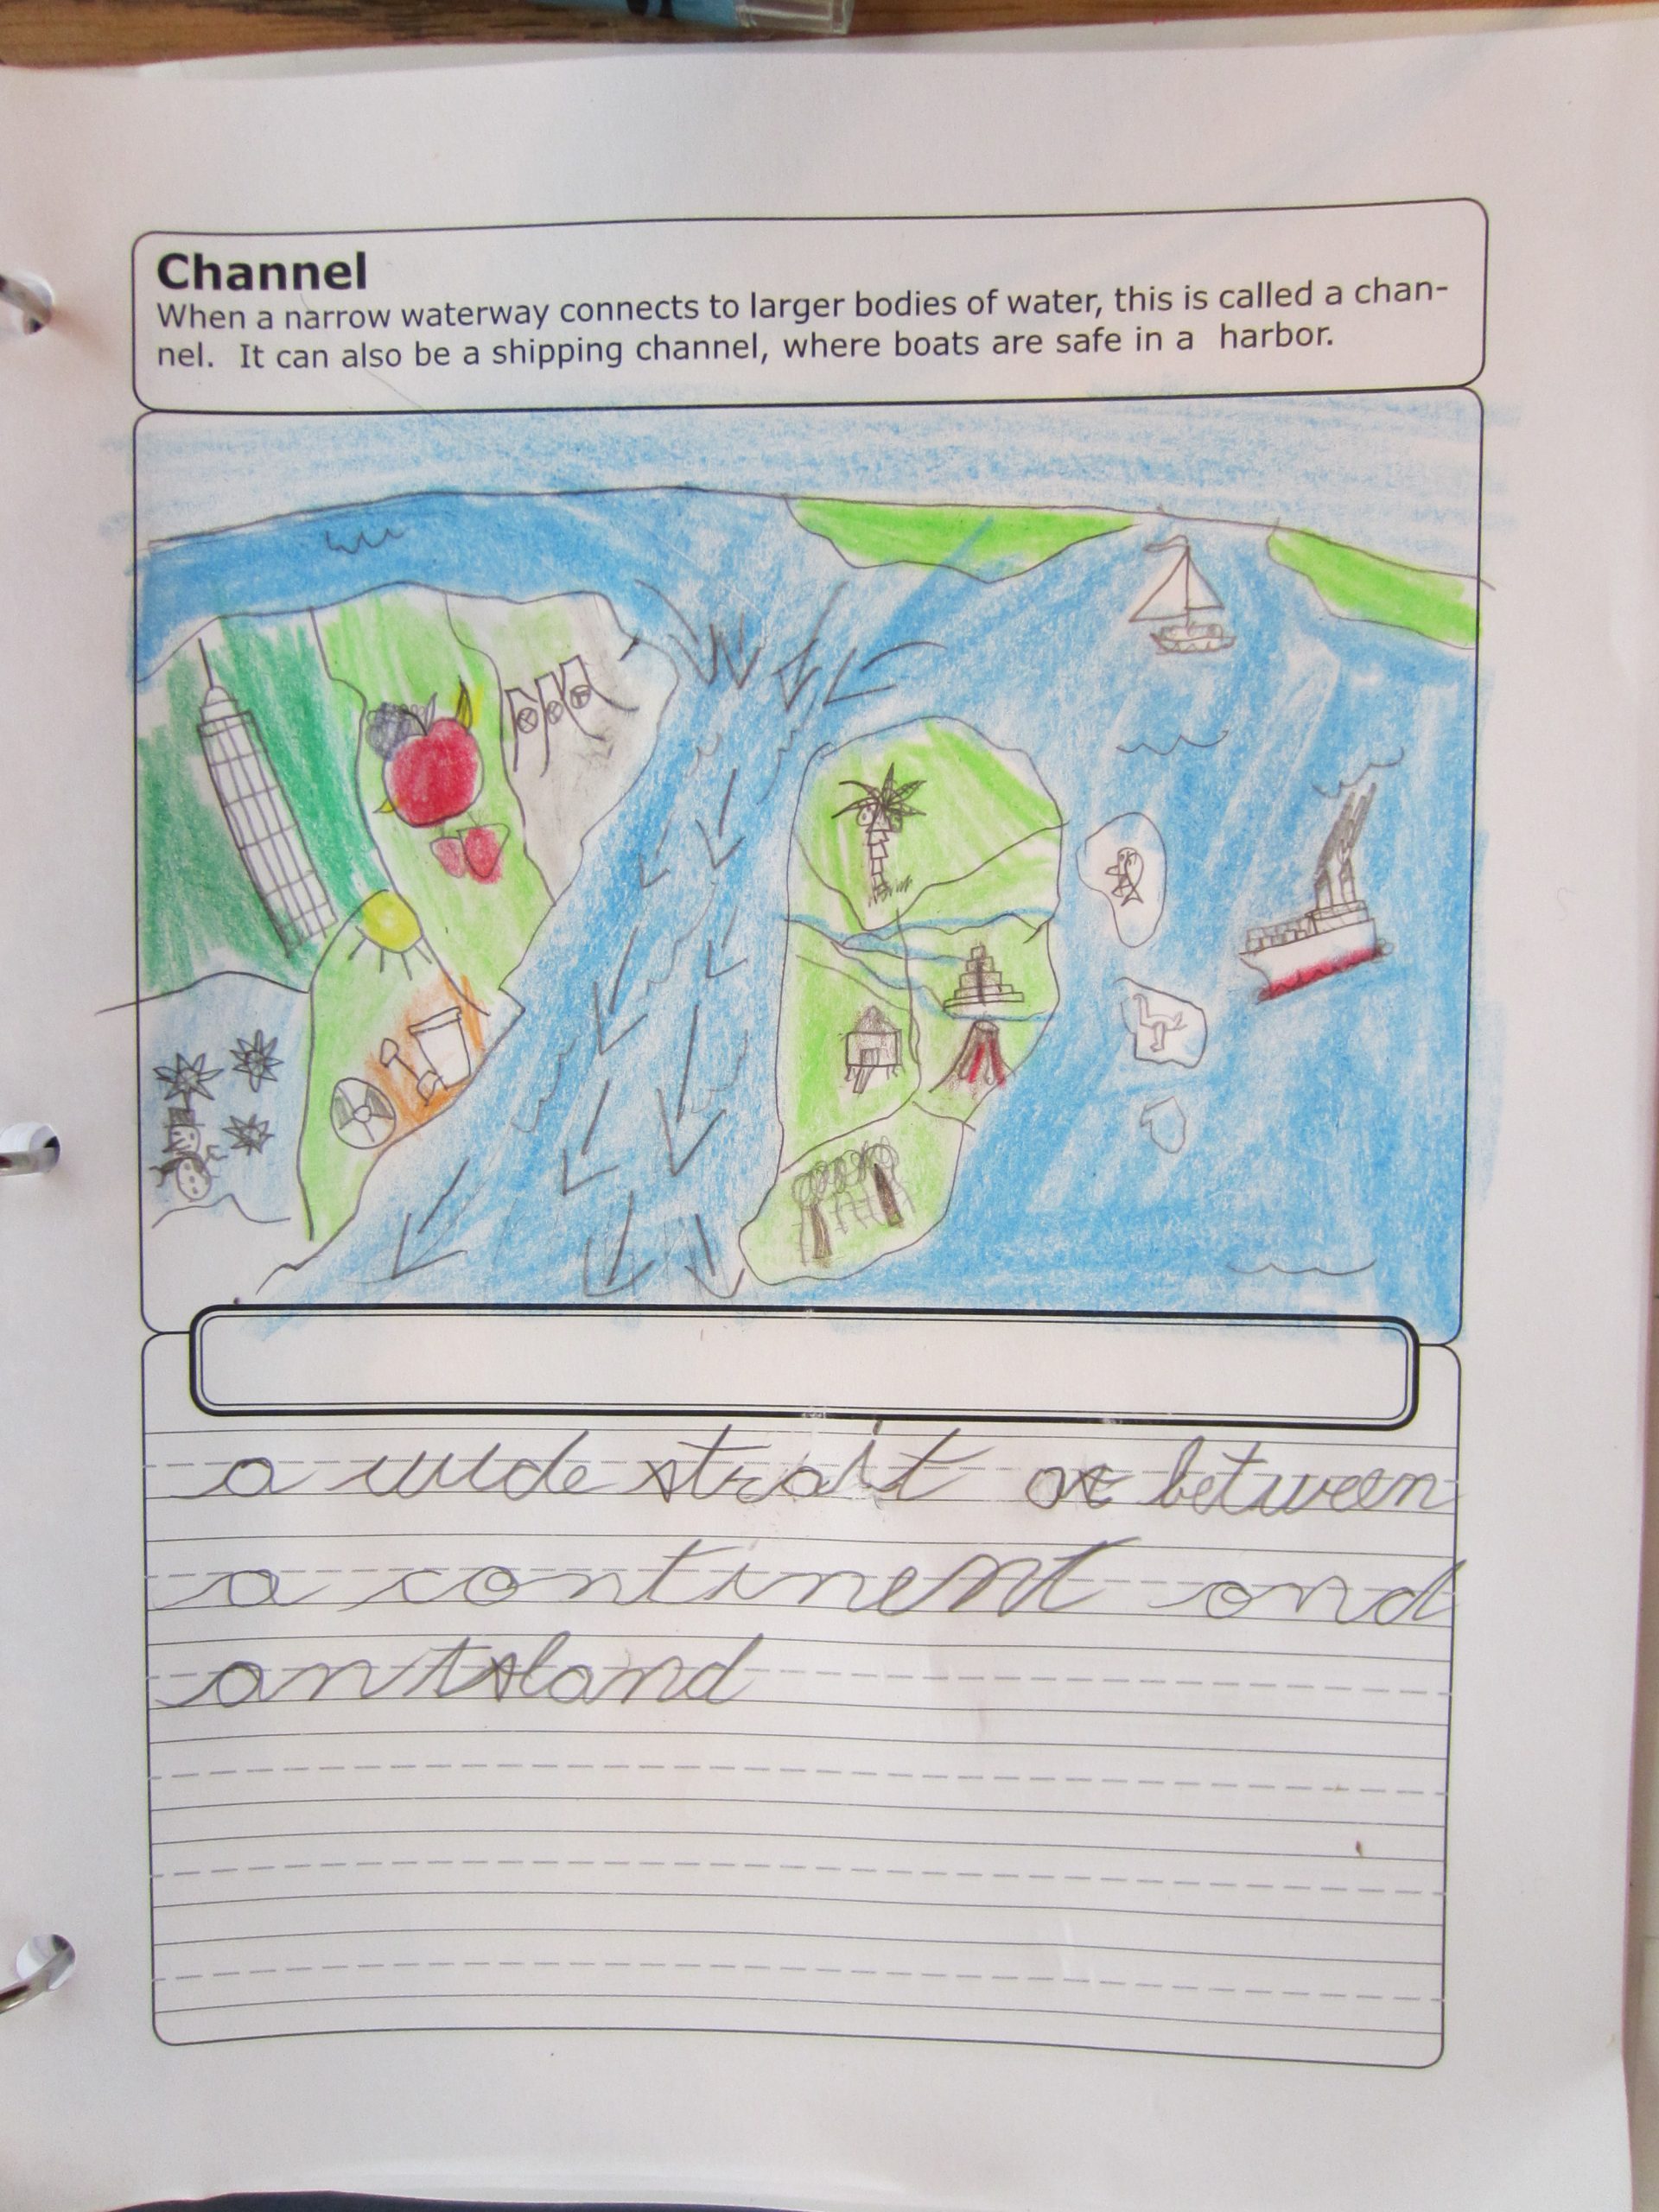 Channel
When a narrow waterway connects to larger bodies of water, this is called a chan-
nel.  It can also be a shipping channel, where boats are safe in a  harbor.
a wide strait or between
a continent and
an island